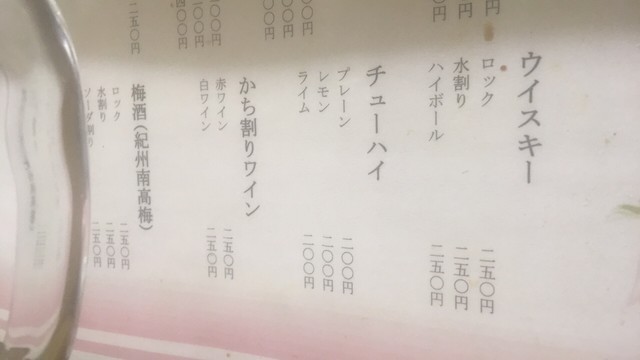 ウイスキー
ロック 二五〇円
水割り 二五〇円
ハイボール 二五〇円
チューハイ
プレーン 二〇〇円
レモン 二〇〇円
ライム 二〇〇円
かち割りワイン
赤ワイン 二五〇円
白ワイン 二五〇円
梅酒(紀州南高梅)
ロック 二五〇円
水割り 二五〇円
ソーダ割り 二五〇円